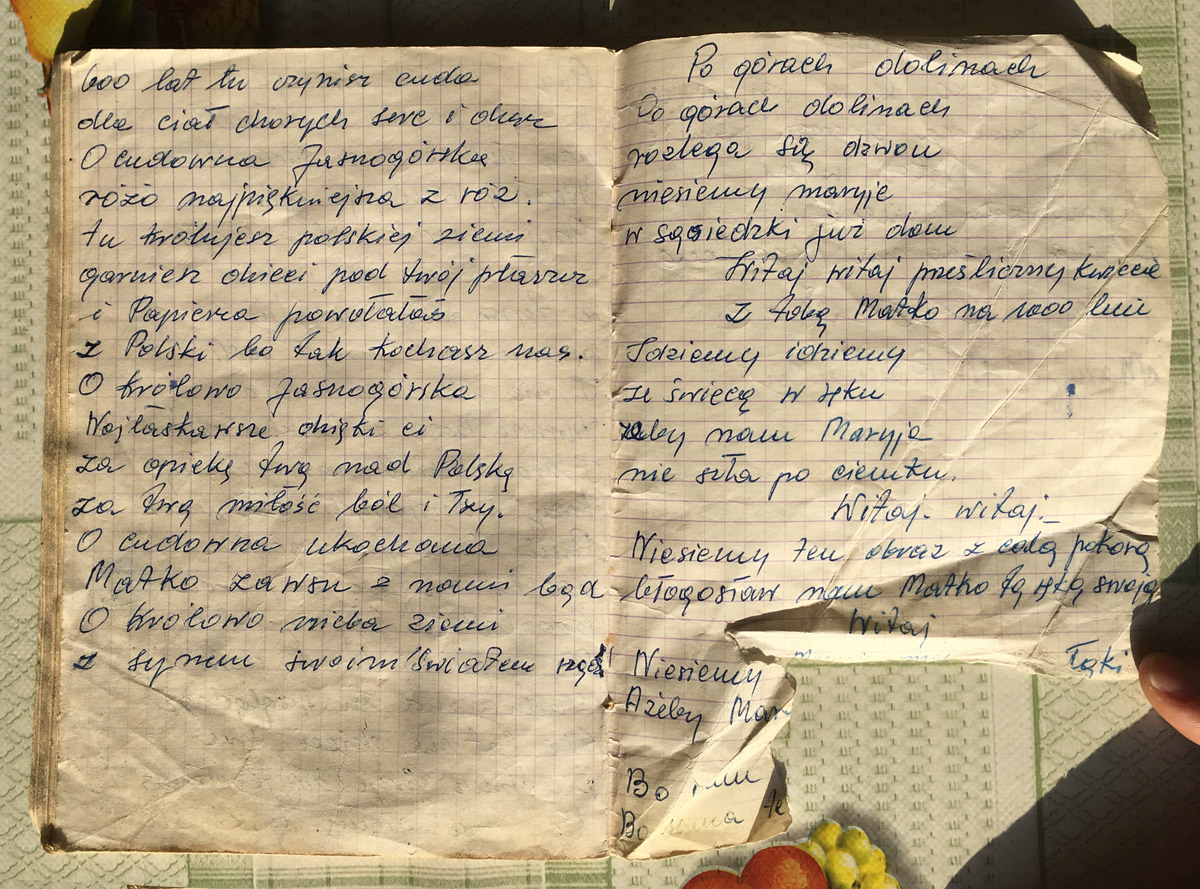 600 lat tu czynisz cuda
dla ciał chorych serc i dusz
O cudowna Jasnogórska
różo najpiękniejsza z róż.
tu królujesz polskiej ziemi
garniesz dzieci pod twój płaszcz
i Papieża powołałaś
z Polski bo tak kochasz nas.
O Królowo Jasnogórska
Najłaskawsze dzięki ci
za opiekę twą nad Polską
za twą miłość ból i łzy.
O cudowna ukochana
Matko zawsze z nami bąd
O Królowo nieba ziemi
z synem swoim światem rządź
Po górach dolinach
Po górach dolinach
rozlega się dzwon
niesiemy maryje
w sąsiedzki już dom
Witaj witaj prześliczny kwiecie
z tobą Matko na 1000 leci
Idziemy idziemy
ze świecą w ręku
żeby nam Maryja
nie szła po ciemku.
Witaj. witaj._
Niesiemy ten obraz z całą pokorą
błogosław nam Matko tą ręką swoją
Witaj
Niesiemy
łąki
Ażeby Mar
Bo
Bo te